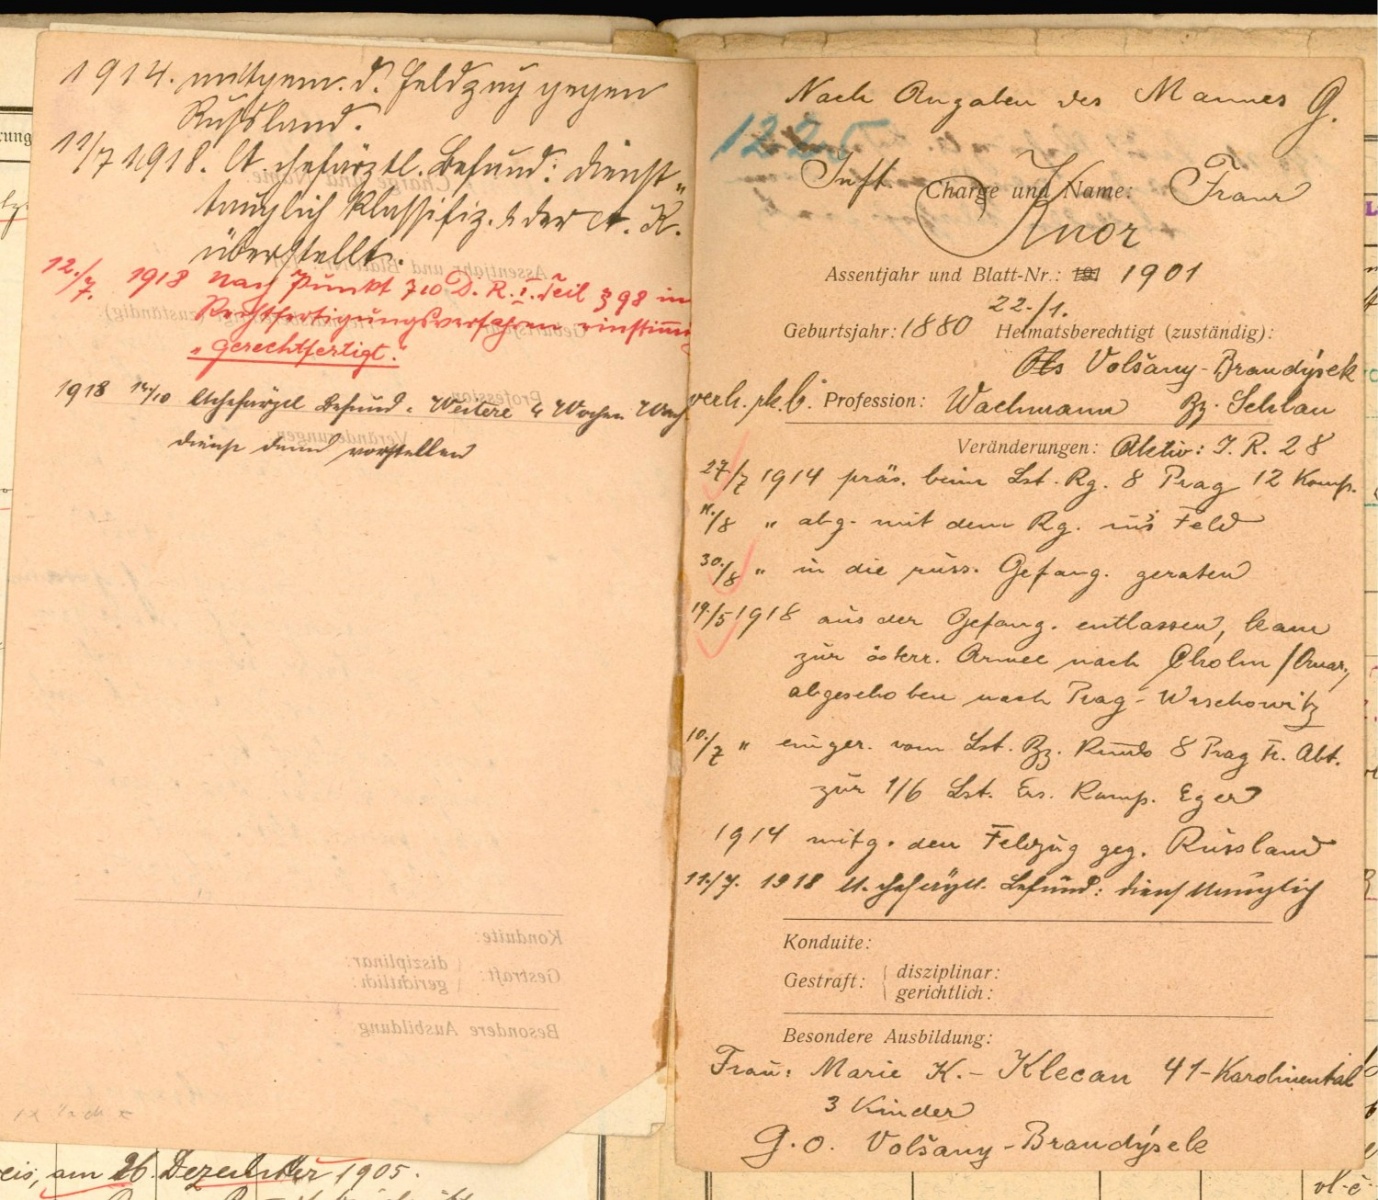 1914. mitgem. d. Feldzug gegen
Russland.
11/7 1918. A chefärztl. Befund: dienst-
tauglich klassifiz. & der K.
überstellt.
12./7. 1918 Nach Punkt 710 D. R. I. Teil § 98 im
Rechtfertigungsverfahren einstimm
"gerechtfertigt.
1918 14/10 Achefärztl Befund: Weitere 4 Wochen
dienst dann vorstellen
Nach Angaben des Mannes G.
1225
Inft Charge und Name: Franz
Knor
Assentjahr und Blatt-Nr.: 1901
22./1.
Geburtsjahr: 1880 Heimatsberechtigt (zuständig):
Volšany-Brandýsek
verh. rk. b. Profession: Wachmann Bz. Schlan
Veränderungen: Aktiv: I. R. 28
27/7 1914 präs. beim Lst. Rg. 8 Prag 12 Komp.
11./8 " abg. mit dem Rg. ins Feld
30./8 " in die russ. Gefang. geraten
19./5 1918 aus der Gefang. entlassen, kam
zur österr. Armee nach Cholm
abgeschoben nach Prag-Wrschowitz
10./7 " einger. vom Lst. Bz. Kmdo 8 Prag Abt.
zur 1/6 Lst. Ers. Komp. Eger
1914 mitg. den Feldzug geg. Russland
11./7. 1918 A. chefärztl. Befund: diensttauglich
Konduite:
Gestraft: disziplinar:
gerichtlich:
Besondere Ausbildung:
Frau: Marie K.- Klecan 41-Karolinental
3 Kinder
G.O. Volšany-Brandýsek
am 26. Dezember 1905.